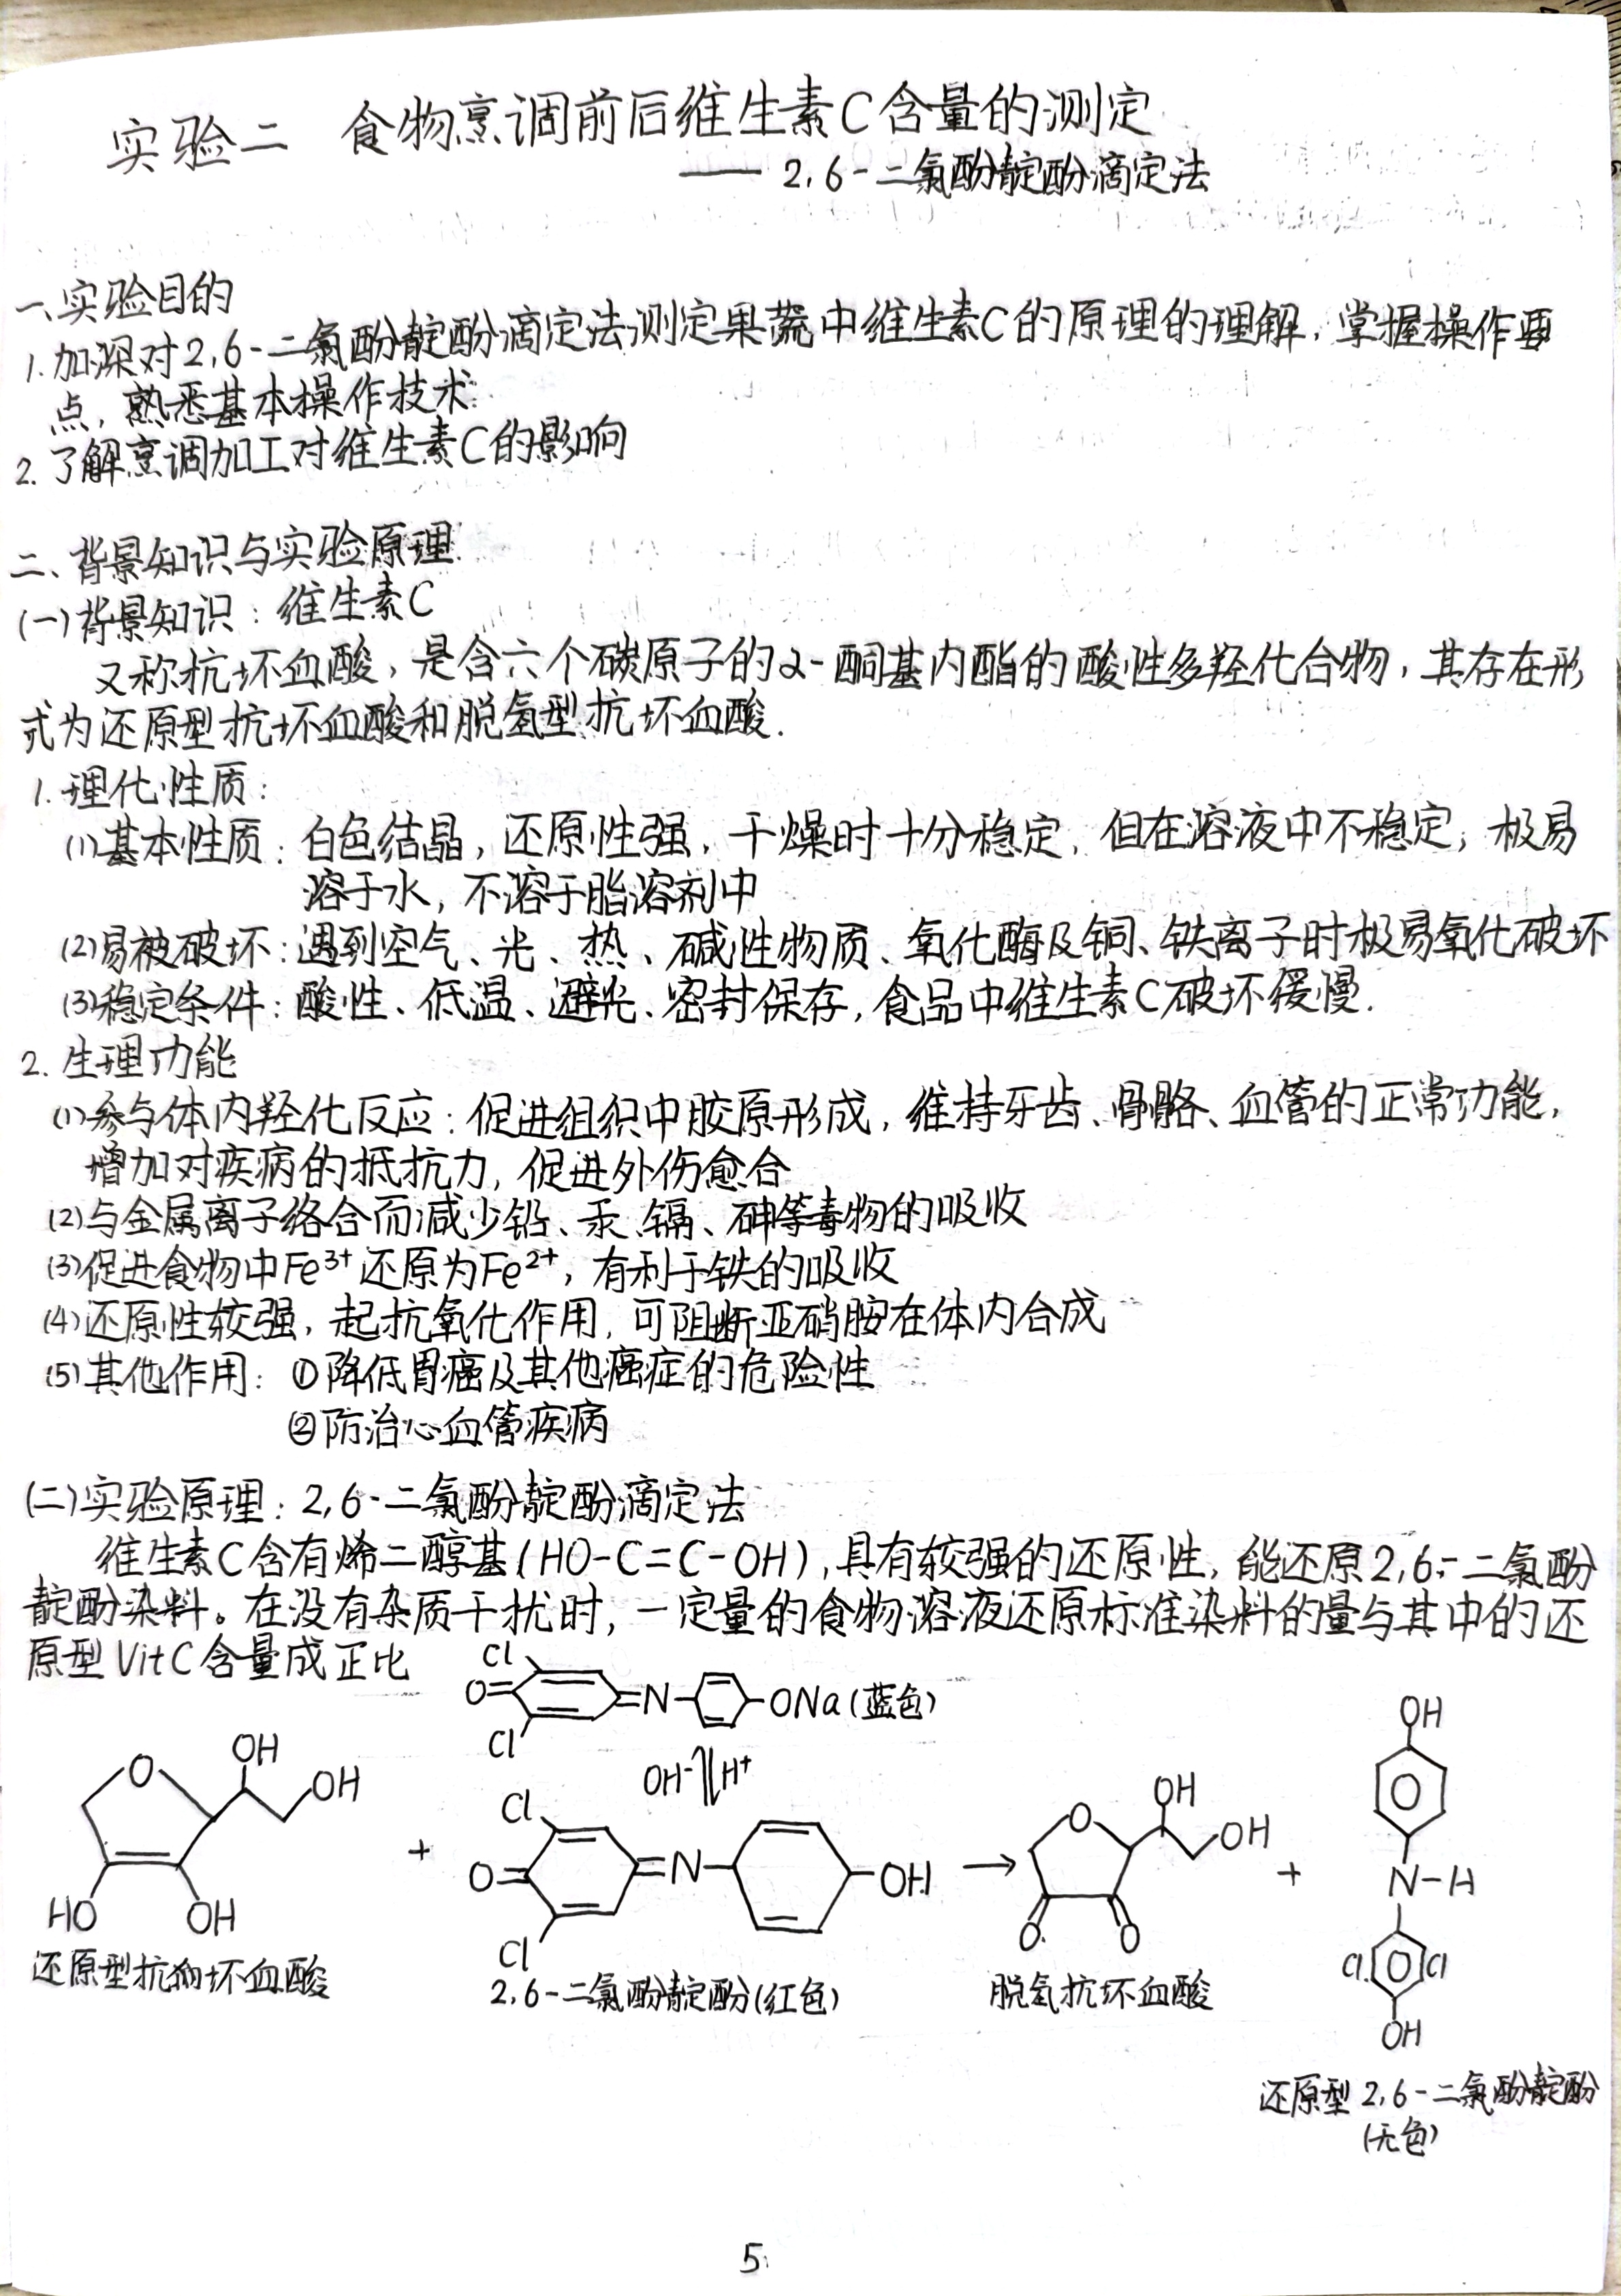 实验二 食物烹调前后维生素C含量的测定
—— 2,6-二氯酚靛酚滴定法
一、实验目的
1. 加深对2,6-二氯酚靛酚滴定法测定果蔬中维生素C的原理的理解,掌握操作要
点,熟悉基本操作技术
2. 了解烹调加工对维生素C的影响
二、背景知识与实验原理
(一)背景知识:维生素C
又称抗坏血酸,是含六个碳原子的α-酮基内酯的酸性多羟化合物,其存在形
式为还原型抗坏血酸和脱氢型抗坏血酸.
1. 理化性质:
(1)基本性质:白色结晶,还原性强,干燥时十分稳定,但在溶液中不稳定;极易
溶于水,不溶于脂溶剂中
(2)易被破坏:遇到空气、光、热、碱性物质、氧化酶及铜、铁离子时极易氧化破坏
(3)稳定条件:酸性、低温、避光、密封保存,食品中维生素C破坏缓慢.
2. 生理功能
(1)参与体内羟化反应:促进组织中胶原形成,维持牙齿、骨骼、血管的正常功能,
增加对疾病的抵抗力,促进外伤愈合
(2)与金属离子络合而减少铅、汞、镉、砷等毒物的吸收
(3)促进食物中Fe³⁺还原为Fe²⁺,有利于铁的吸收
(4)还原性较强,起抗氧化作用,可阻断亚硝胺在体内合成
(5)其他作用:①降低胃癌及其他癌症的危险性
②防治心血管疾病
(二)实验原理:2,6-二氯酚靛酚滴定法
维生素C含有烯二醇基(HO-C=C-OH),具有较强的还原性,能还原2,6-二氯酚
靛酚染料。在没有杂质干扰时,一定量的食物溶液还原标准染料的量与其中的还
原型VitC含量成正比
Cl
O= =N- -ONa(蓝色)
Cl
OH⁻ H⁺
O OH OH
HO OH
还原型抗坏血酸
+
Cl
O= =N- -OH
Cl
2,6-二氯酚靛酚(红色)
→
O OH OH
O O
脱氢抗坏血酸
+
OH
N-H
Cl Cl
OH
还原型2,6-二氯酚靛酚
(无色)
5